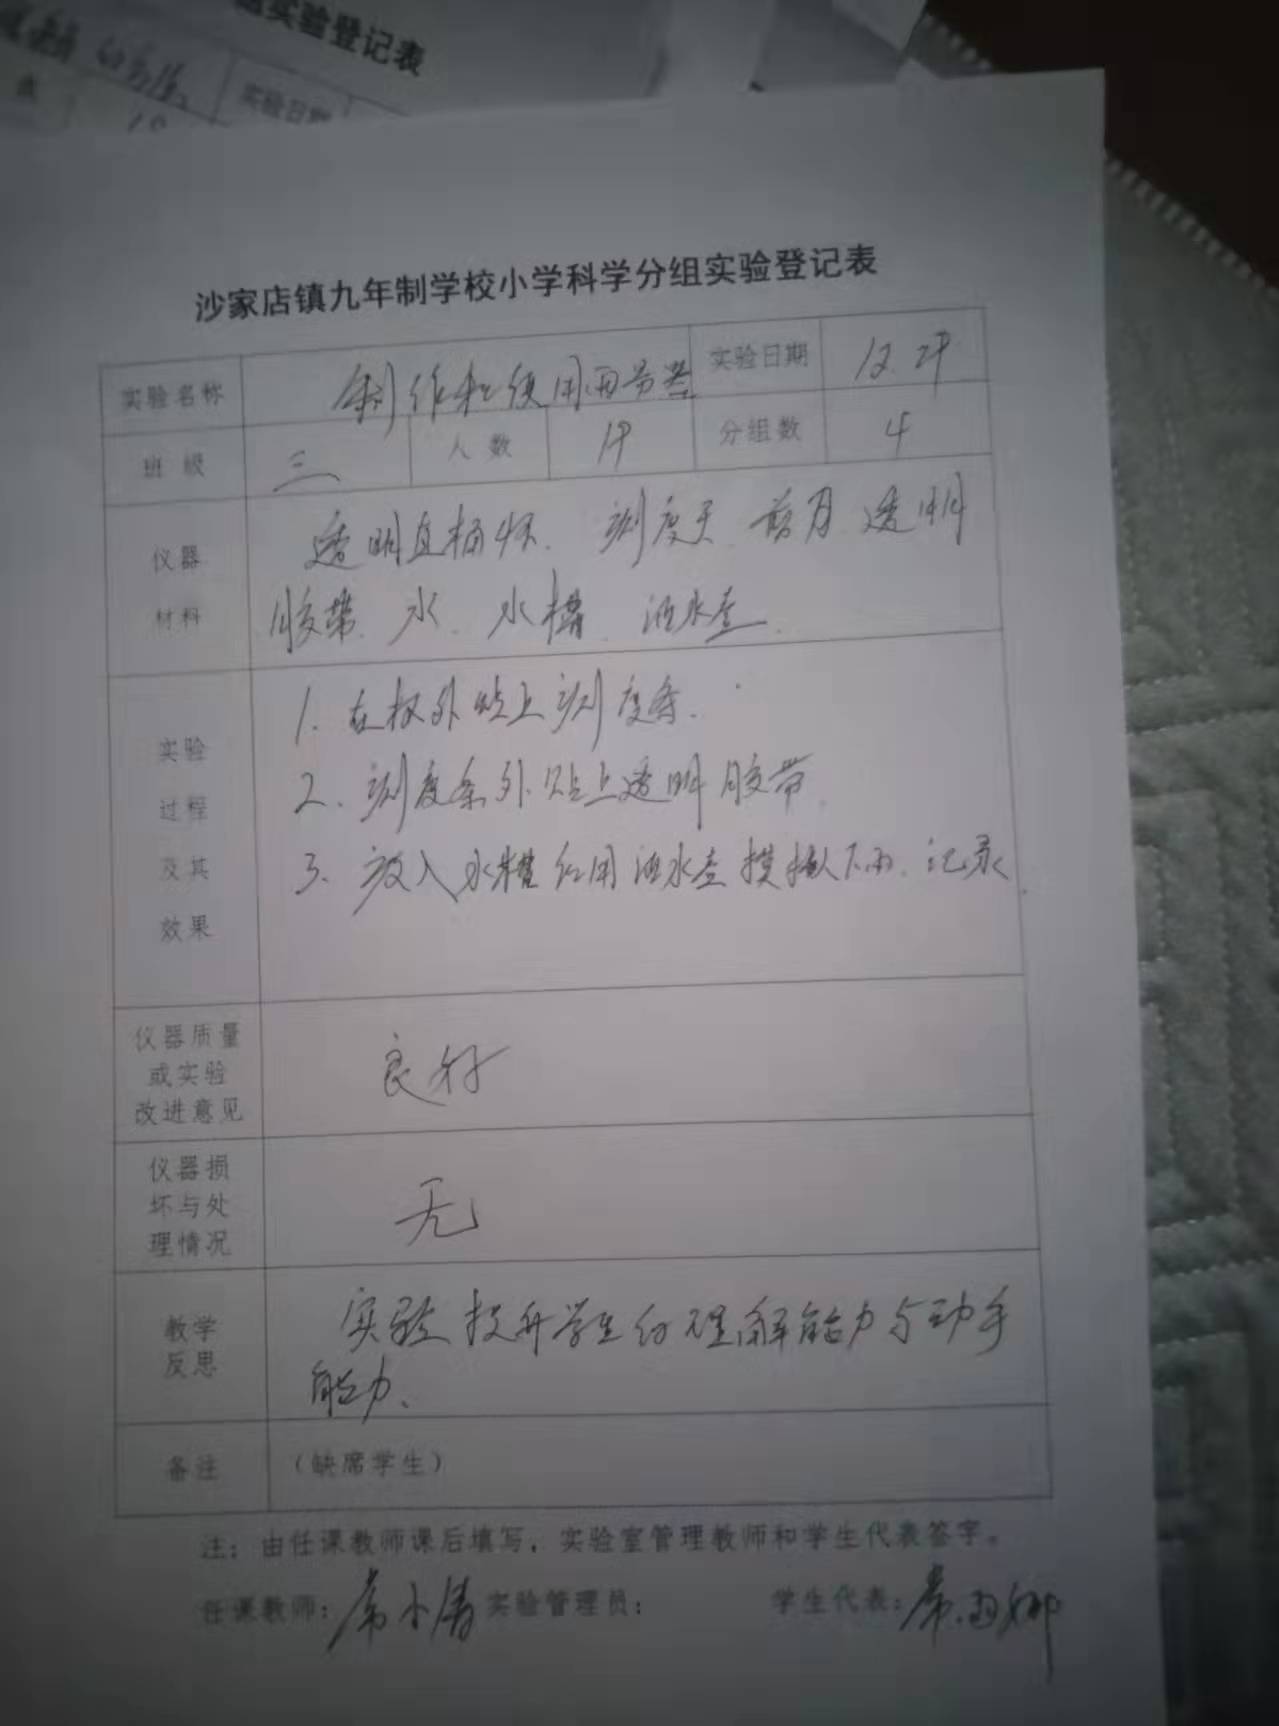 实验登记表
实验日期
沙家店镇九年制学校小学科学分组实验登记表
实验名称 制作和使用雨量器 实验日期
班 级 三 人 数 19 分组数 4
仪器 透明直桶杯、刻度天、剪刀、透明
材料 胶带、水、水槽、洒水壶、
实验 1、在杯外贴上刻度条、
过程 2、刻度条外贴上透明胶带、
及其 3、放入水槽红用洒水壶模拟下雨、记录、
效果
仪器质量
或实验 良好
改进意见
仪器损
坏与处 无
理情况
教学 实验提升学生的理解能力与动手
反思 能力、
备注 （缺席学生）
注：由任课教师课后填写，实验室管理教师和学生代表签字。
任课教师： 实验管理员： 学生代表：